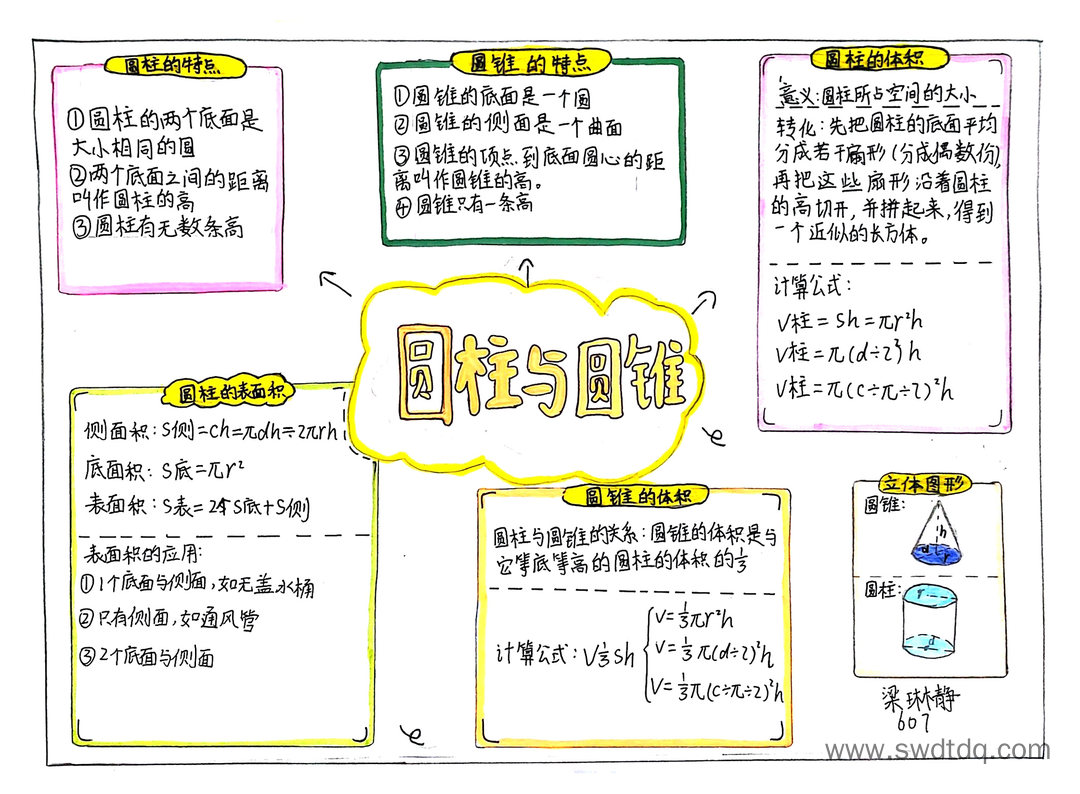 圆柱的特点
①圆柱的两个底面是
大小相同的圆
②两个底面之间的距离
叫作圆柱的高
③圆柱有无数条高
圆锥的特点
①圆锥的底面是一个圆
②圆锥的侧面是一个曲面
③圆锥的顶点到底面圆心的距
离叫作圆锥的高。
④圆锥只有一条高
圆柱的体积
意义:圆柱所占空间的大小
转化:先把圆柱的底面平均
分成若干扇形(分成偶数份),
再把这些扇形沿着圆柱
的高切开,并拼起来,得到
一个近似的长方体。
计算公式:
V柱=Sh=πr²h
V柱=π(d÷2)²h
V柱=π(C÷π÷2)²h
圆柱与圆锥
圆柱的表面积
侧面积:S侧=ch=πdh=2πrh
底面积:S底=πr²
表面积:S表=2个S底+S侧
表面积的应用:
①1个底面与侧面,如无盖水桶
②只有侧面,如通风管
③2个底面与侧面
圆锥的体积
圆柱与圆锥的关系:圆锥的体积是与
它等底等高的圆柱的体积的⅓
计算公式:V⅓Sh
V=⅓πr²h
V=⅓π(d÷2)²h
V=⅓π(C÷π÷2)²h
立体图形
圆锥:
h
d
r
圆柱:
r
d
梁琳静
607
www.swdtdq.com